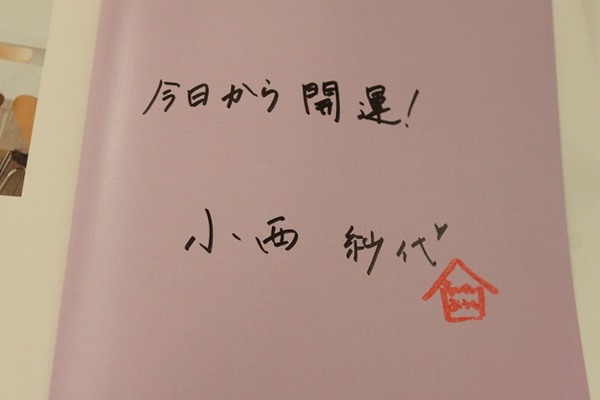 今日から開運!
小西 紗代